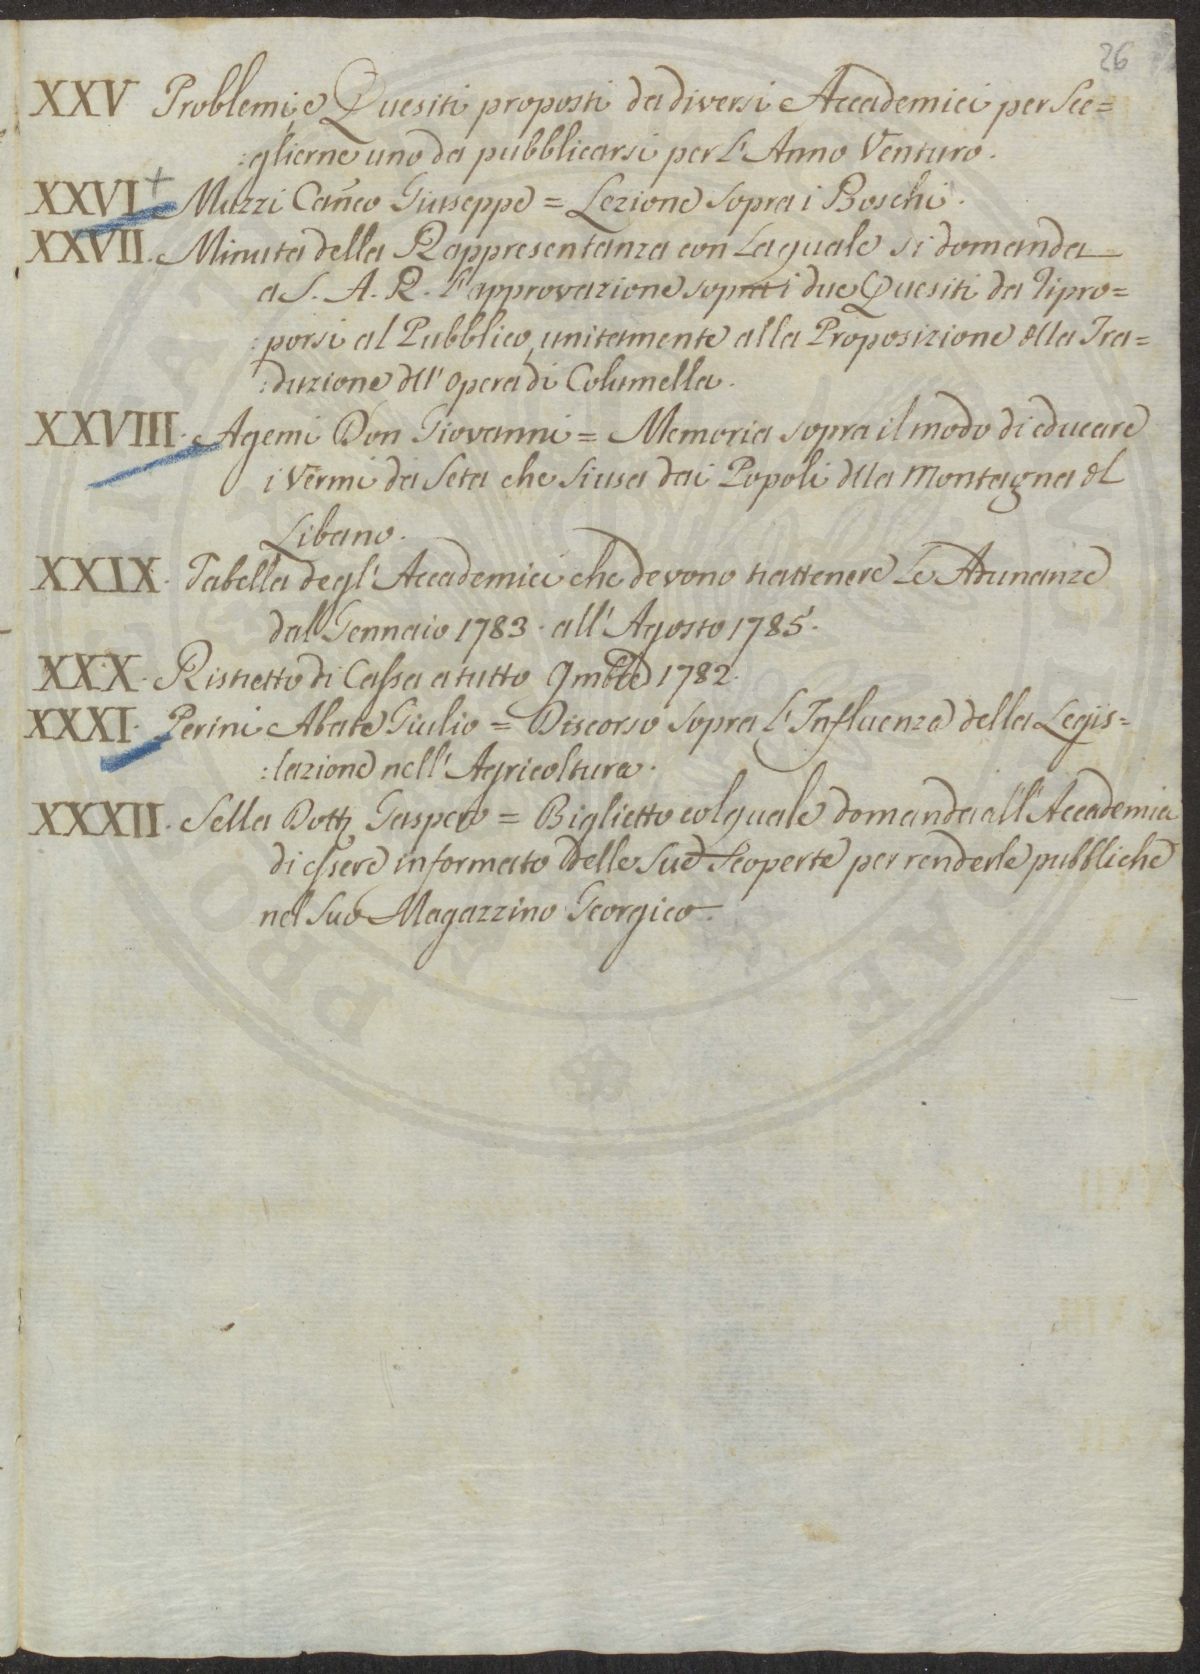 26
XXV Problemi, e Quesiti proposti da diversi Accademici per Sce=
:glierne uno da pubblicarsi per L'Anno Venturo.
XXVI + Muzzi Canco Giuseppe = Lezione sopra i Boschi.
XXVII. Minuta della Rappresentanza con La quale si domanda
a S. A. R. l'approvazione sopra i due Quesiti da ripro=
:porsi al Pubblico, unitamente alla Proposizione dlla Tra=
:duzione dll' Opera di Columella.
XXVIII. Agemi Don Giovanni = Memoria sopra il modo di educare
i Vermi da Seta che si usa dai Popoli dlla Montagna dl
Libano.
XXIX. Tabella degl' Accademici che devono trattenere Le Adunanze
dal Gennaio 1783. all' Agosto 1785.
XXX. Ristretto di Cassa a tutto 9mbre 1782.
XXXI. Perini Abate Giulio = Discorso sopra L'Influenza della Legis=
:lazione nell' Agricoltura.
XXXII. Sella Dott. Gaspero = Biglietto col quale domanda all' Accademia
di essere informato delle Sue Scoperte per renderle pubbliche
nel Suo Magazzino Georgico.